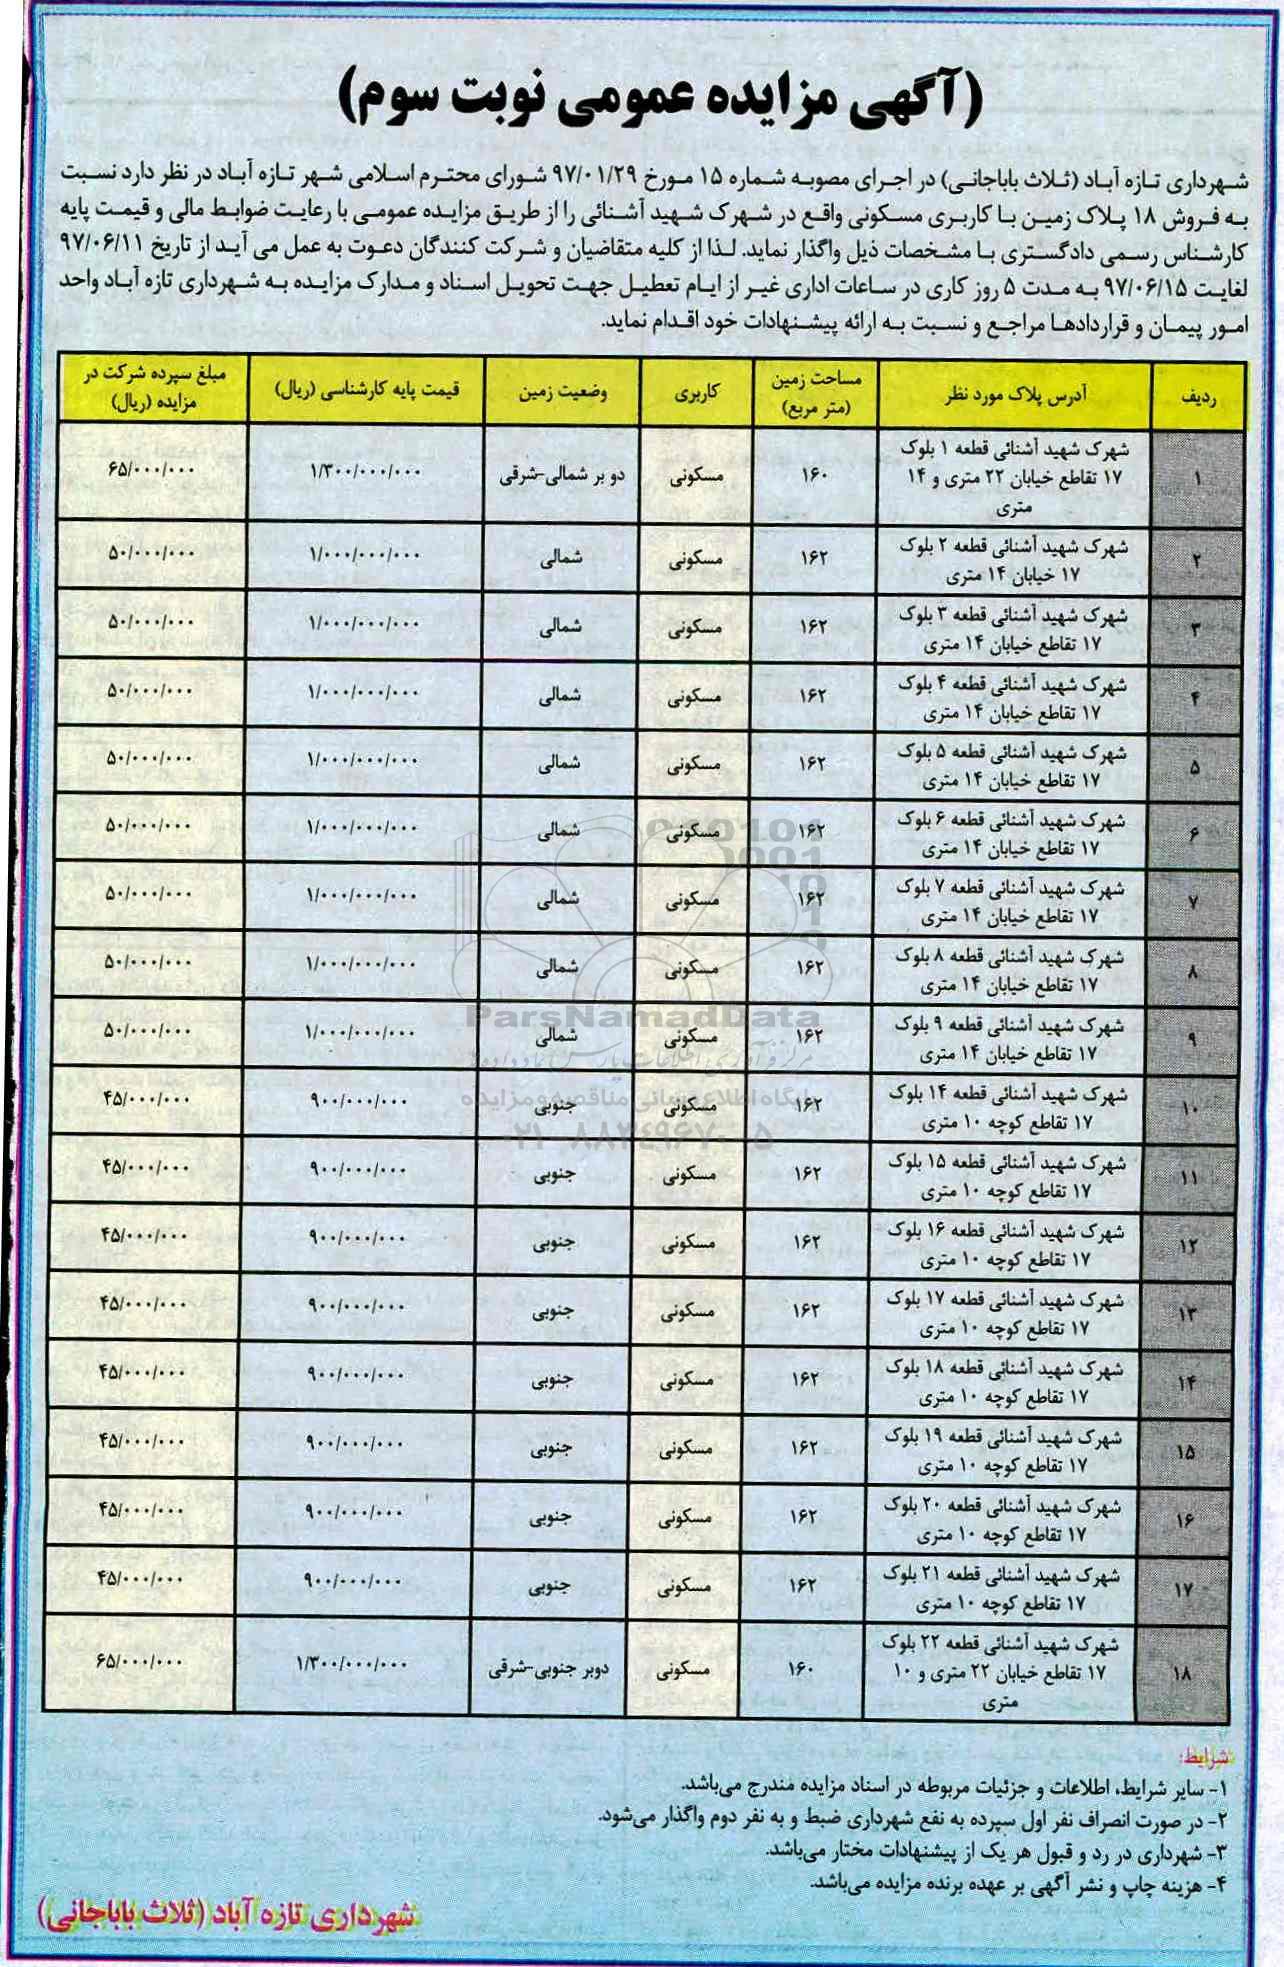 (آگهی مزایده عمومی نوبت سوم)
شهرداری تازه آباد (ثلاث باباجانی) در اجرای مصوبه شماره ۱۵ مورخ ۹۷/۰۱/۲۹ شورای محترم اسلامی شهر تازه آباد در نظر دارد نسبت
به فروش ۱۸ پلاک زمین با کاربری مسکونی واقع در شهرک شهید آشنائی را از طریق مزایده عمومی با رعایت ضوابط مالی و قیمت پایه
کارشناس رسمی دادگستری با مشخصات ذیل واگذار نماید. لذا از کلیه متقاضیان و شرکت کنندگان دعوت به عمل می آید از تاریخ ۹۷/۰۶/۱۱
لغایت ۹۷/۰۶/۱۵ به مدت ۵ روز کاری در ساعات اداری غیر از ایام تعطیل جهت تحویل اسناد و مدارک مزایده به شهرداری تازه آباد واحد
امور پیمان و قراردادها مراجع و نسبت به ارائه پیشنهادات خود اقدام نماید.
ردیف آدرس پلاک مورد نظر مساحت زمین (متر مربع) کاربری وضعیت زمین قیمت پایه کارشناسی (ریال) مبلغ سپرده شرکت در مزایده (ریال)
۱ شهرک شهید آشنائی قطعه ۱ بلوک ۱۷ تقاطع خیابان ۲۲ متری و ۱۴ متری ۱۶۰ مسکونی دو بر شمالی-شرقی ۱/۳۰۰/۰۰۰/۰۰۰ ۶۵/۰۰۰/۰۰۰
۲ شهرک شهید آشنائی قطعه ۲ بلوک ۱۷ خیابان ۱۴ متری ۱۶۲ مسکونی شمالی ۱/۰۰۰/۰۰۰/۰۰۰ ۵۰/۰۰۰/۰۰۰
۳ شهرک شهید آشنائی قطعه ۳ بلوک ۱۷ تقاطع خیابان ۱۴ متری ۱۶۲ مسکونی شمالی ۱/۰۰۰/۰۰۰/۰۰۰ ۵۰/۰۰۰/۰۰۰
۴ شهرک شهید آشنائی قطعه ۴ بلوک ۱۷ تقاطع خیابان ۱۴ متری ۱۶۲ مسکونی شمالی ۱/۰۰۰/۰۰۰/۰۰۰ ۵۰/۰۰۰/۰۰۰
۵ شهرک شهید آشنائی قطعه ۵ بلوک ۱۷ تقاطع خیابان ۱۴ متری ۱۶۲ مسکونی شمالی ۱/۰۰۰/۰۰۰/۰۰۰ ۵۰/۰۰۰/۰۰۰
۶ شهرک شهید آشنائی قطعه ۶ بلوک ۱۷ تقاطع خیابان ۱۴ متری ۱۶۲ مسکونی شمالی ۱/۰۰۰/۰۰۰/۰۰۰ ۵۰/۰۰۰/۰۰۰
۷ شهرک شهید آشنائی قطعه ۷ بلوک ۱۷ تقاطع خیابان ۱۴ متری ۱۶۲ مسکونی شمالی ۱/۰۰۰/۰۰۰/۰۰۰ ۵۰/۰۰۰/۰۰۰
۸ شهرک شهید آشنائی قطعه ۸ بلوک ۱۷ تقاطع خیابان ۱۴ متری ۱۶۲ مسکونی شمالی ۱/۰۰۰/۰۰۰/۰۰۰ ۵۰/۰۰۰/۰۰۰
۹ شهرک شهید آشنائی قطعه ۹ بلوک ۱۷ تقاطع خیابان ۱۴ متری ۱۶۲ مسکونی شمالی ۱/۰۰۰/۰۰۰/۰۰۰ ۵۰/۰۰۰/۰۰۰
ParsNamadData
۱۰ شهرک شهید آشنائی قطعه ۱۴ بلوک ۱۷ تقاطع کوچه ۱۰ متری ۱۶۲ مسکونی جنوبی ۹۰۰/۰۰۰/۰۰۰ ۴۵/۰۰۰/۰۰۰
پایگاه اطلاع رسانی مناقصه و مزایده
۱۱ شهرک شهید آشنائی قطعه ۱۵ بلوک ۱۷ تقاطع کوچه ۱۰ متری ۱۶۲ مسکونی جنوبی ۹۰۰/۰۰۰/۰۰۰ ۴۵/۰۰۰/۰۰۰
۱۲ شهرک شهید آشنائی قطعه ۱۶ بلوک ۱۷ تقاطع کوچه ۱۰ متری ۱۶۲ مسکونی جنوبی ۹۰۰/۰۰۰/۰۰۰ ۴۵/۰۰۰/۰۰۰
۱۳ شهرک شهید آشنائی قطعه ۱۷ بلوک ۱۷ تقاطع کوچه ۱۰ متری ۱۶۲ مسکونی جنوبی ۹۰۰/۰۰۰/۰۰۰ ۴۵/۰۰۰/۰۰۰
۱۴ شهرک شهید آشنائی قطعه ۱۸ بلوک ۱۷ تقاطع کوچه ۱۰ متری ۱۶۲ مسکونی جنوبی ۹۰۰/۰۰۰/۰۰۰ ۴۵/۰۰۰/۰۰۰
۱۵ شهرک شهید آشنائی قطعه ۱۹ بلوک ۱۷ تقاطع کوچه ۱۰ متری ۱۶۲ مسکونی جنوبی ۹۰۰/۰۰۰/۰۰۰ ۴۵/۰۰۰/۰۰۰
۱۶ شهرک شهید آشنائی قطعه ۲۰ بلوک ۱۷ تقاطع کوچه ۱۰ متری ۱۶۲ مسکونی جنوبی ۹۰۰/۰۰۰/۰۰۰ ۴۵/۰۰۰/۰۰۰
۱۷ شهرک شهید آشنائی قطعه ۲۱ بلوک ۱۷ تقاطع کوچه ۱۰ متری ۱۶۲ مسکونی جنوبی ۹۰۰/۰۰۰/۰۰۰ ۴۵/۰۰۰/۰۰۰
۱۸ شهرک شهید آشنائی قطعه ۲۲ بلوک ۱۷ تقاطع خیابان ۲۲ متری و ۱۰ متری ۱۶۰ مسکونی دوبر جنوبی-شرقی ۱/۳۰۰/۰۰۰/۰۰۰ ۶۵/۰۰۰/۰۰۰
شرایط:
۱- سایر شرایط، اطلاعات و جزئیات مربوطه در اسناد مزایده مندرج می‌باشد.
۲- در صورت انصراف نفر اول سپرده به نفع شهرداری ضبط و به نفر دوم واگذار می‌شود.
۳- شهرداری در رد و قبول هر یک از پیشنهادات مختار می‌باشد.
۴- هزینه چاپ و نشر آگهی بر عهده برنده مزایده می‌باشد.
شهرداری تازه آباد (ثلاث باباجانی)